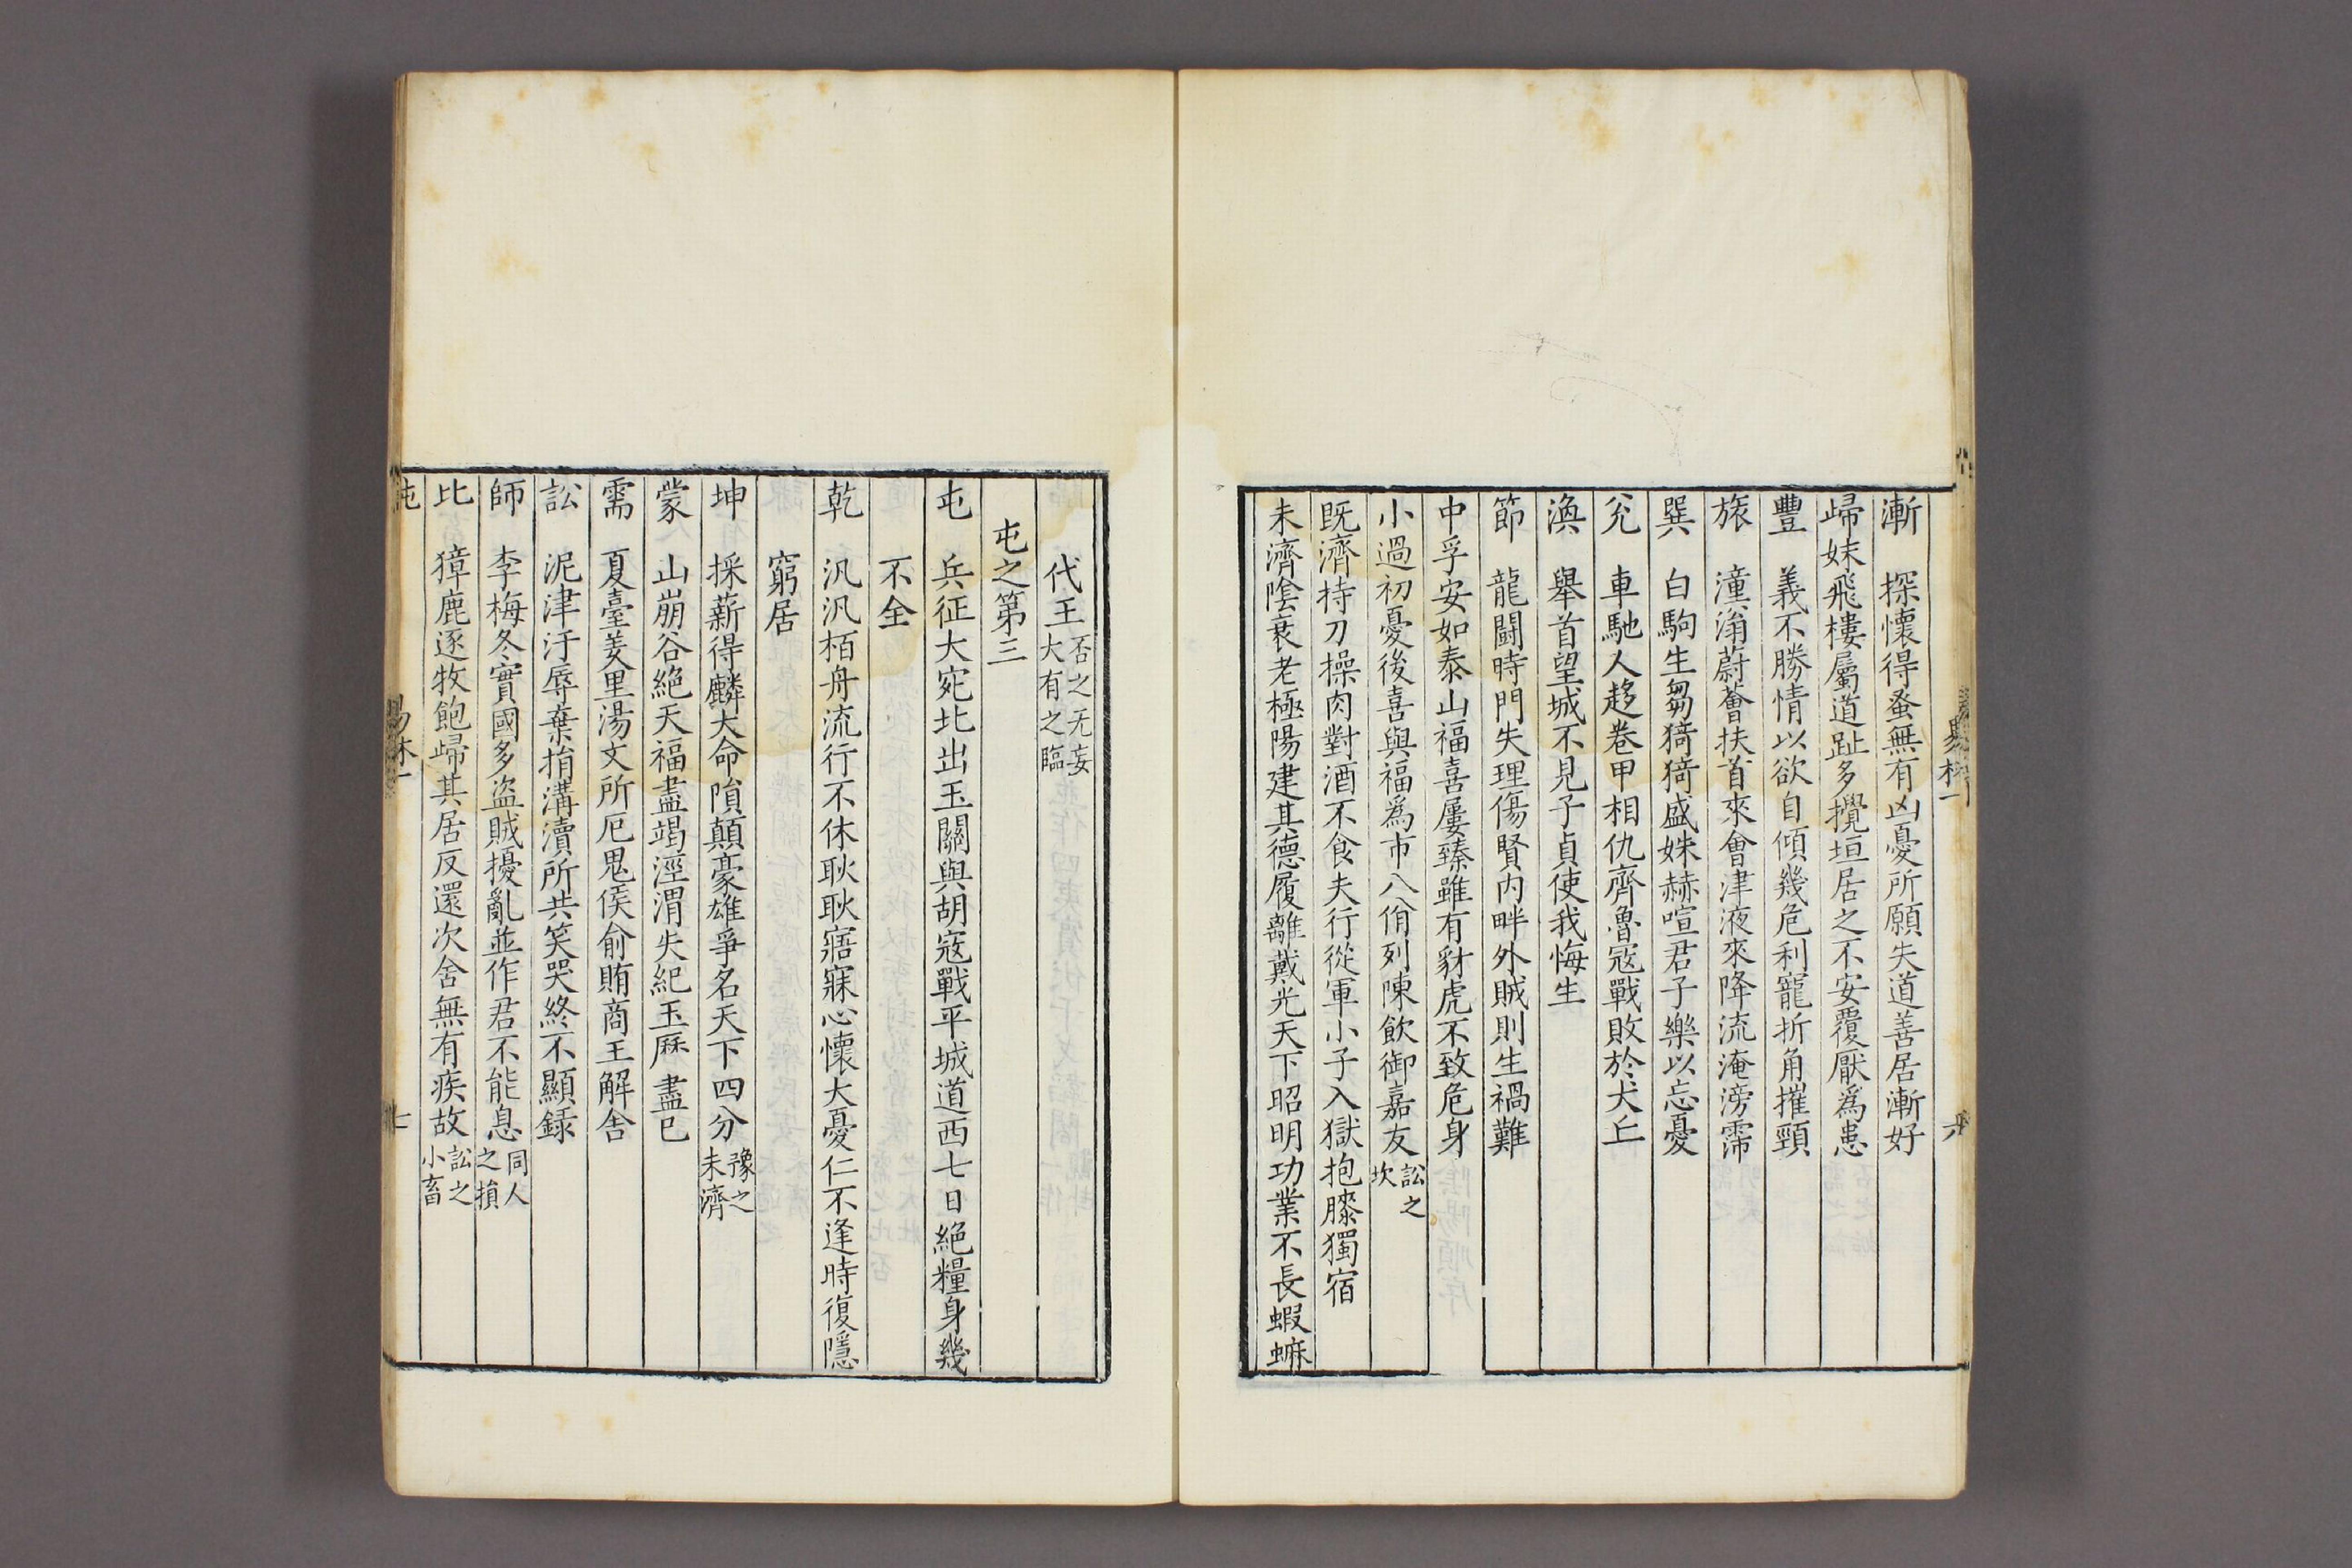 漸　探懷得蚤無有凶憂所願失道善居漸好
歸妹飛樓屬道趾多攪垣居之不安覆厭爲患
豐　義不勝情以欲自傾幾危利寵折角摧頸
旅　潼滃蔚薈扶首來會津液來降流淹滂霈
巽　白駒生芻猗猗盛姝赫喧君子樂以忘憂
兊　車馳人趍卷甲相仇齊魯寇戰敗於犬丘
渙　舉首望城不見子貞使我悔生
節　龍鬪時門失理傷賢内畔外賊則生禍難
中孚安如泰山福喜屢臻雖有豺虎不致危身
小過初憂後喜與福爲市八八佾列陳飲御嘉友訟之坎
既濟持刀操肉對酒不食夫行從軍小子入獄抱膝獨宿
未濟陰衰老極陽建其德履離戴光天下昭明功業不長蝦蟆
代王否之无妄大有之臨
屯之第三
屯　兵征大宛北出玉關與胡寇戰平城道西七日絶糧身幾
不全
乾　汎汎栢舟流行不休耿耿寤寐心懷大憂仁不逢時復隱
窮居
坤　採薪得麟大命隕顛豪雄爭名天下四分豫之未濟
蒙　山崩谷絶天福盡竭涇渭失紀玉厤盡已
需　夏臺姜里湯文所厄鬼侯俞賄商王解舎
訟　泥津汙辱棄捐溝瀆所共笑哭終不顯録
師　李梅冬實國多盗賊擾亂並作君不能息同人之損
比　獐鹿逐牧飽歸其居反還次舎無有疾故訟之小畜
易林一
七